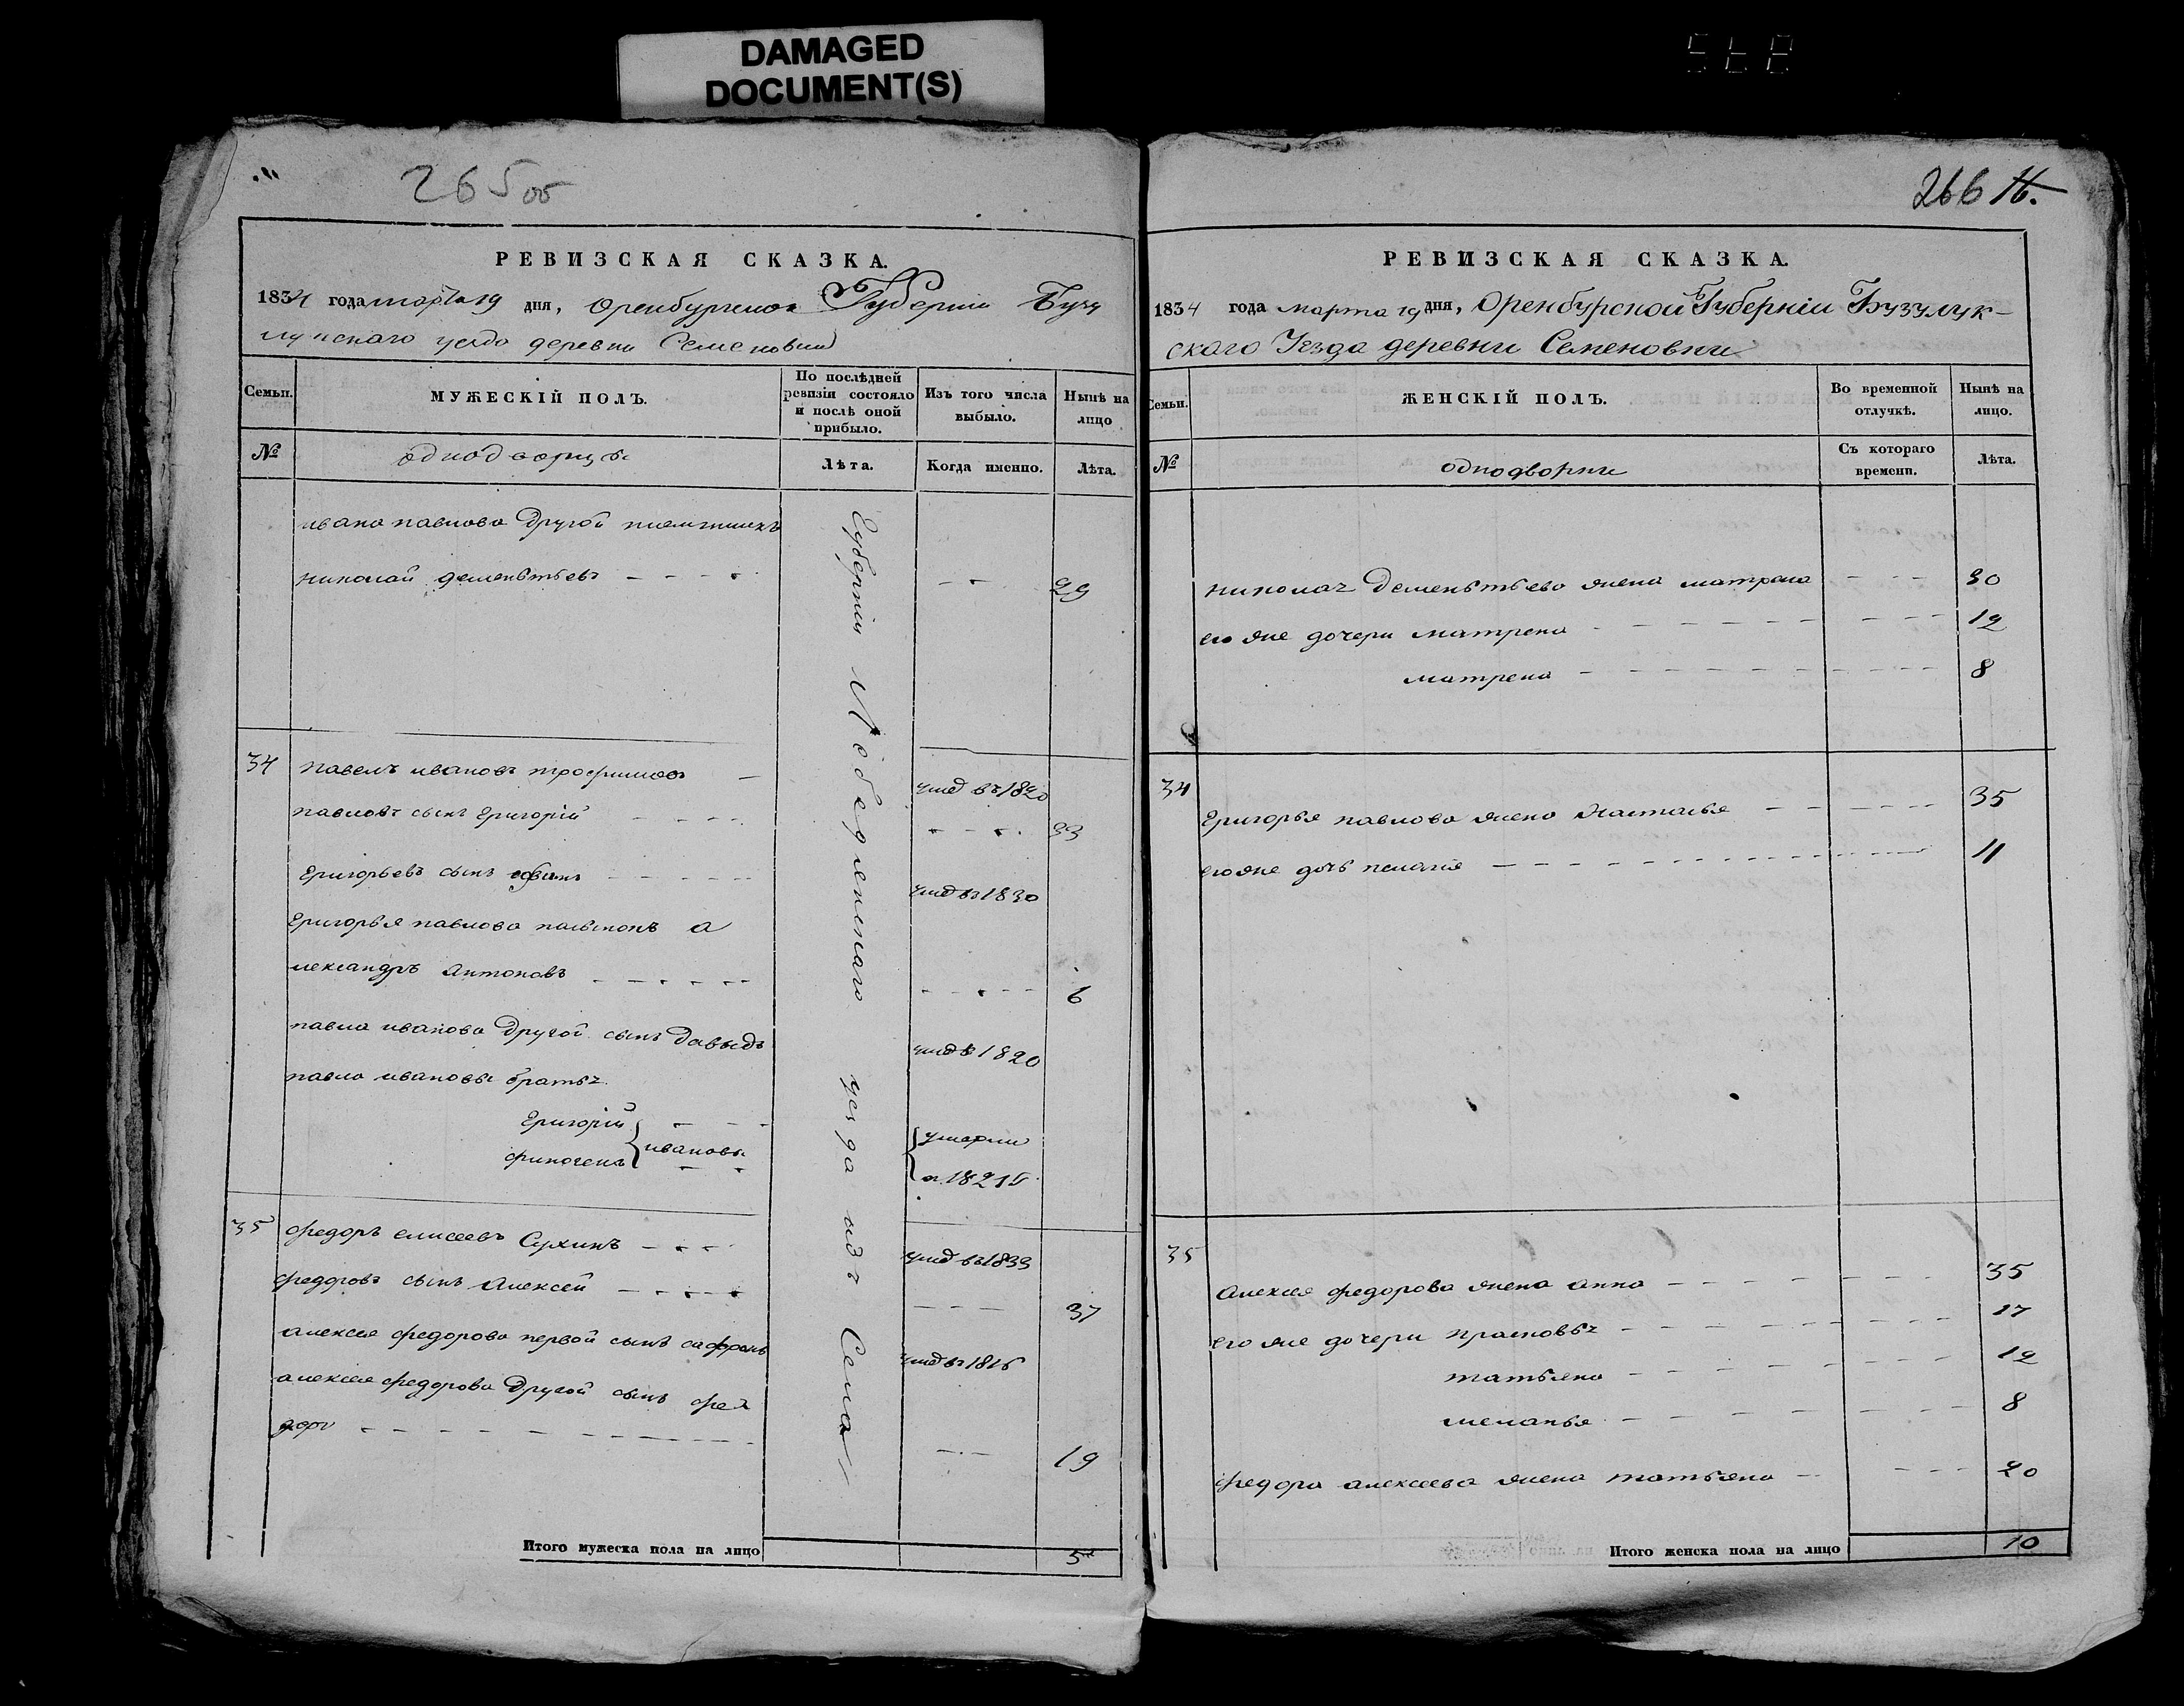 DAMAGED
DOCUMENT(S)
265 об
РЕВИЗСКАЯ СКАЗКА.
1834 года марта 19 дня, Оренбургской Губернии Бузу
лукскаго уезда деревни Семеновки
Семьи.
МУЖЕСКІЙ ПОЛЪ.
По послѣдней
ревизіи состояло
и послѣ оной
прибыло.
Изъ того числа
выбыло.
Нынѣ на
лицо
№
однодворцы
Лѣта.
Когда именно.
Лѣта.
ивана павлова другой племянникъ
николай дементьевъ - - - - - - 29
34 павелъ ивановъ трофимовъ - умер въ 1820
павловъ сынъ григорій - - - - - - - 33
григорьевъ сынъ - - - - - умер въ 1830
григорья павлова пасынокъ а
лександръ антоновъ - - - - - - - - - - 6
павла иванова другой сынъ давыдъ умер в 1820
павла ивановы братья
григорій - - - умерли
финогенъ ивановы - - в 1821 г.
35 федоръ елисеевъ Сухинъ - - - умер въ 1833
федоровъ сынъ алексей - - - - - - - 37
алексея федорова первой сынъ сафронъ умер въ 1816
алексея федорова другой сынъ фе
доръ - - - - - - - - - - - 19
Губернии Лебедянскаго уезда изъ Села
Итого мужеска пола на лицо 5
266 16.
РЕВИЗСКАЯ СКАЗКА.
1834 года марта 19 дня, Оренбурской Губерніи Бузулук-
скаго Уезда деревни Семеновки
Семьи.
ЖЕНСКІЙ ПОЛЪ.
Во временной
отлучкѣ.
Нынѣ на
лицо.
№
однодворки
Съ котораго
времени.
Лѣта.
николая Дементьева жена матрена - - - 30
его же дочери матрена - - - - - - - - - 12
матрена - - - - - - - - - 8
34 григорья павлова жена настасья - - - - - 35
его же дочь пелагия - - - - - - - - - - 11
35 алексея федорова жена анна - - - - - - - 35
его же дочери прасковья - - - - - - - - - 17
татьяна - - - - - - - - 12
меланья - - - - - - - - 8
федора алексеева жена татьяна - - - - 20
Итого женска пола на лицо 10